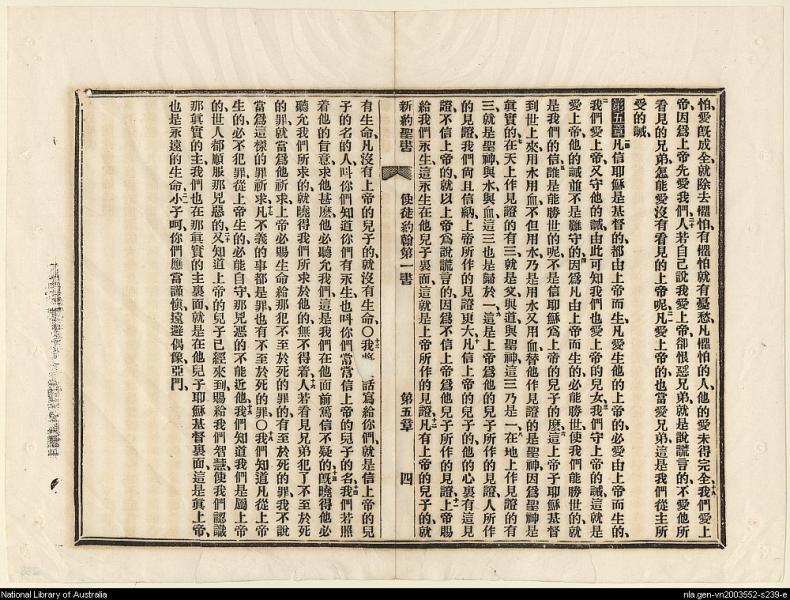 怕、愛既成全、就除去懼怕、有懼怕、就有憂愁、凡懼怕的人、他的愛未得完全、我們愛上
帝、因爲上帝先愛我們、人若自己說我愛上帝、卻恨惡弟兄、就是說謊言的、不愛他所
看見的兄弟、怎能愛沒有看見的上帝呢、凡愛上帝的、也當愛兄弟、這是我們從主所
受的誡、
第五章 凡信耶穌是基督的、都由上帝而生、凡愛生他的上帝的、必愛由上帝而生的、
我們愛上帝、又守他的誡、由此可知我們也愛上帝的兒女、我們守上帝的誡、這就是
愛上帝、他的誡並不是難守的、因爲凡由上帝而生的、必能勝世、使我們能勝世的、就
是我們的信、誰是能勝世的呢、不是信耶穌爲上帝的兒子的麽、這上帝子耶穌基督
到世上來、用水用血、不但用水、乃是用水又用血、替他作見證的是聖神、因爲聖神是
眞實的、在天上作見證的有三、就是父與道與聖神、這三乃是一、在地上作見證的有
三、就是聖神與水與血、這三也是歸於一、這是上帝爲他的兒子所作的見證、人所作
的見證、我們尙且信納、上帝所作的見證更大、凡信上帝的兒子的、他的心裏有這見
證、不信上帝的、就以上帝爲說謊言的、因爲不信上帝爲他兒子所作的見證、上帝賜
給我們永生、這永生在他兒子裏面、這就是上帝所作的見證、凡有上帝的兒子的、就
新約聖書 使徒約翰第一書 第五章 四
有生命、凡沒有上帝的兒子的、就沒有生命○我 話寫給你們、就是信上帝的兒
子的名的人、叫你們知道你們有永生、也叫你們當當信上帝的兒子的名、我們若照
着他的旨意求他甚麽、他必聽允我們、這是我們在他面前篤信不疑的、旣曉得他必
聽允我們所求的、就曉得我們所求於他的、無不得着、人若看見兄弟犯了不至於死
的罪、就當爲他祈求、上帝必賜生命給那犯不至於死的罪的、有至於死的罪、我不說
當爲這樣的罪祈求、凡不義的事都是罪、也有不至於死的罪○我們知道凡從上帝
生的、必不犯罪、從上帝生的、必能自守、那兒惡的不能近他、我們知道我們是屬上帝
的、世人都順服那兒惡的、又知道上帝的兒子已經來到、賜給我們智慧、使我們認識
那眞實的主、我們也在那眞實的主裏面、就是在他兒子耶穌基督裏面、這是眞上帝、
也是永遠的生命、小子呵、你們應當謹愼遠避偶像、亞門、
National Library of Australia
nla.gen-vn2003552-s239-e